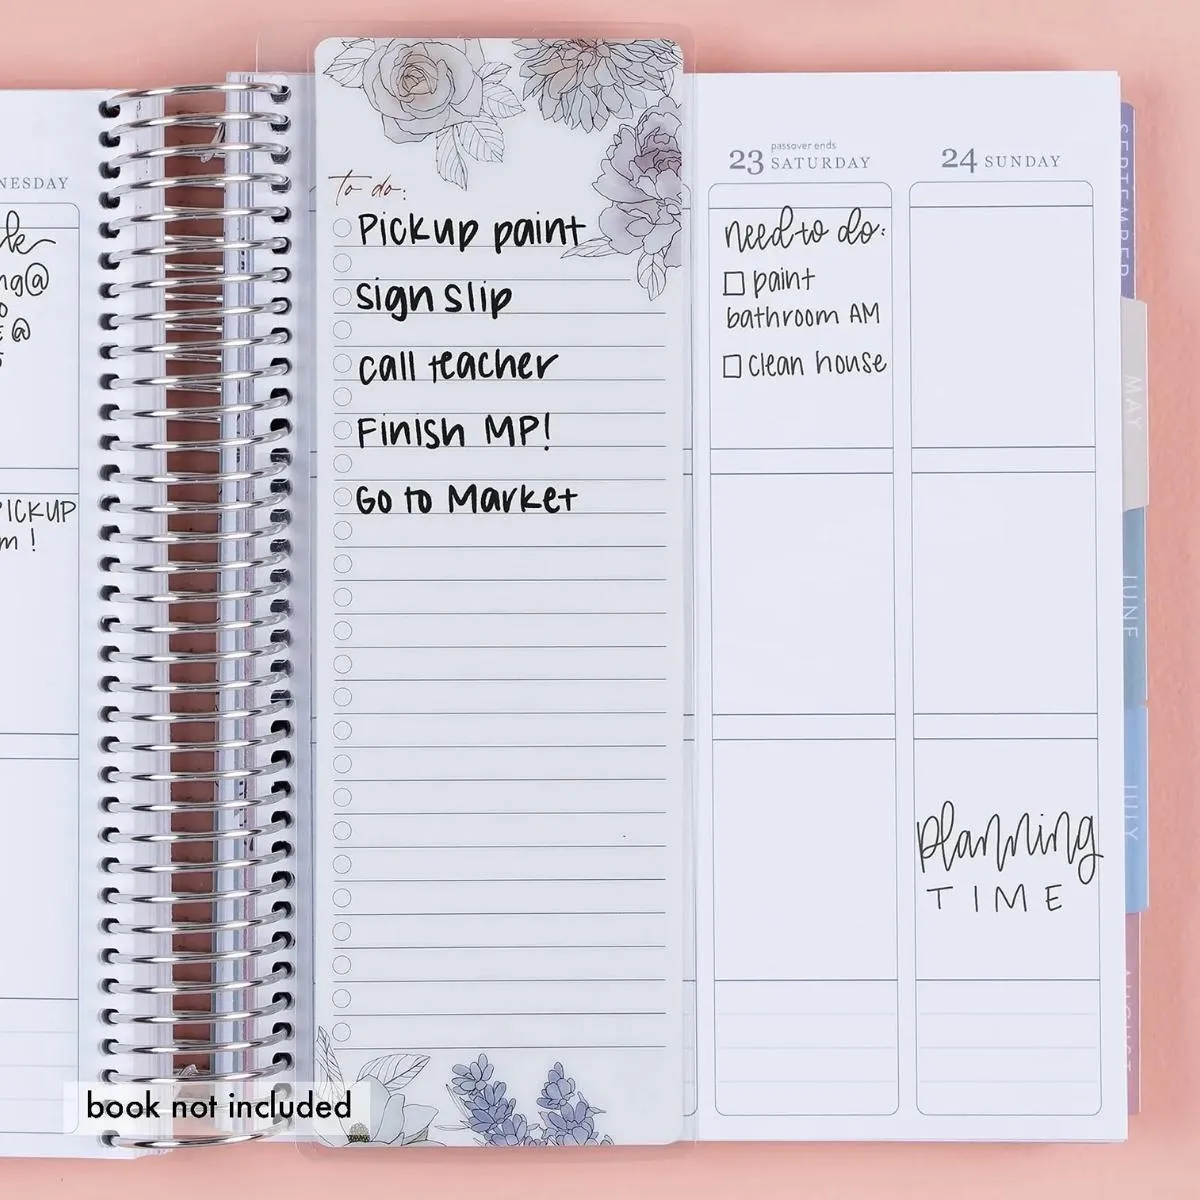 NESDAY
ng@
E @
PICKUP
m !
To do:
Pickup paint
sign slip
call teacher
Finish MP!
Go to Market
passover ends
23 SATURDAY
need to do:
paint
bathroom AM
clean house
24 SUNDAY
planning
TIME
SEPTEMBER
MAY
JUNE
JULY
AUGUST
book not included